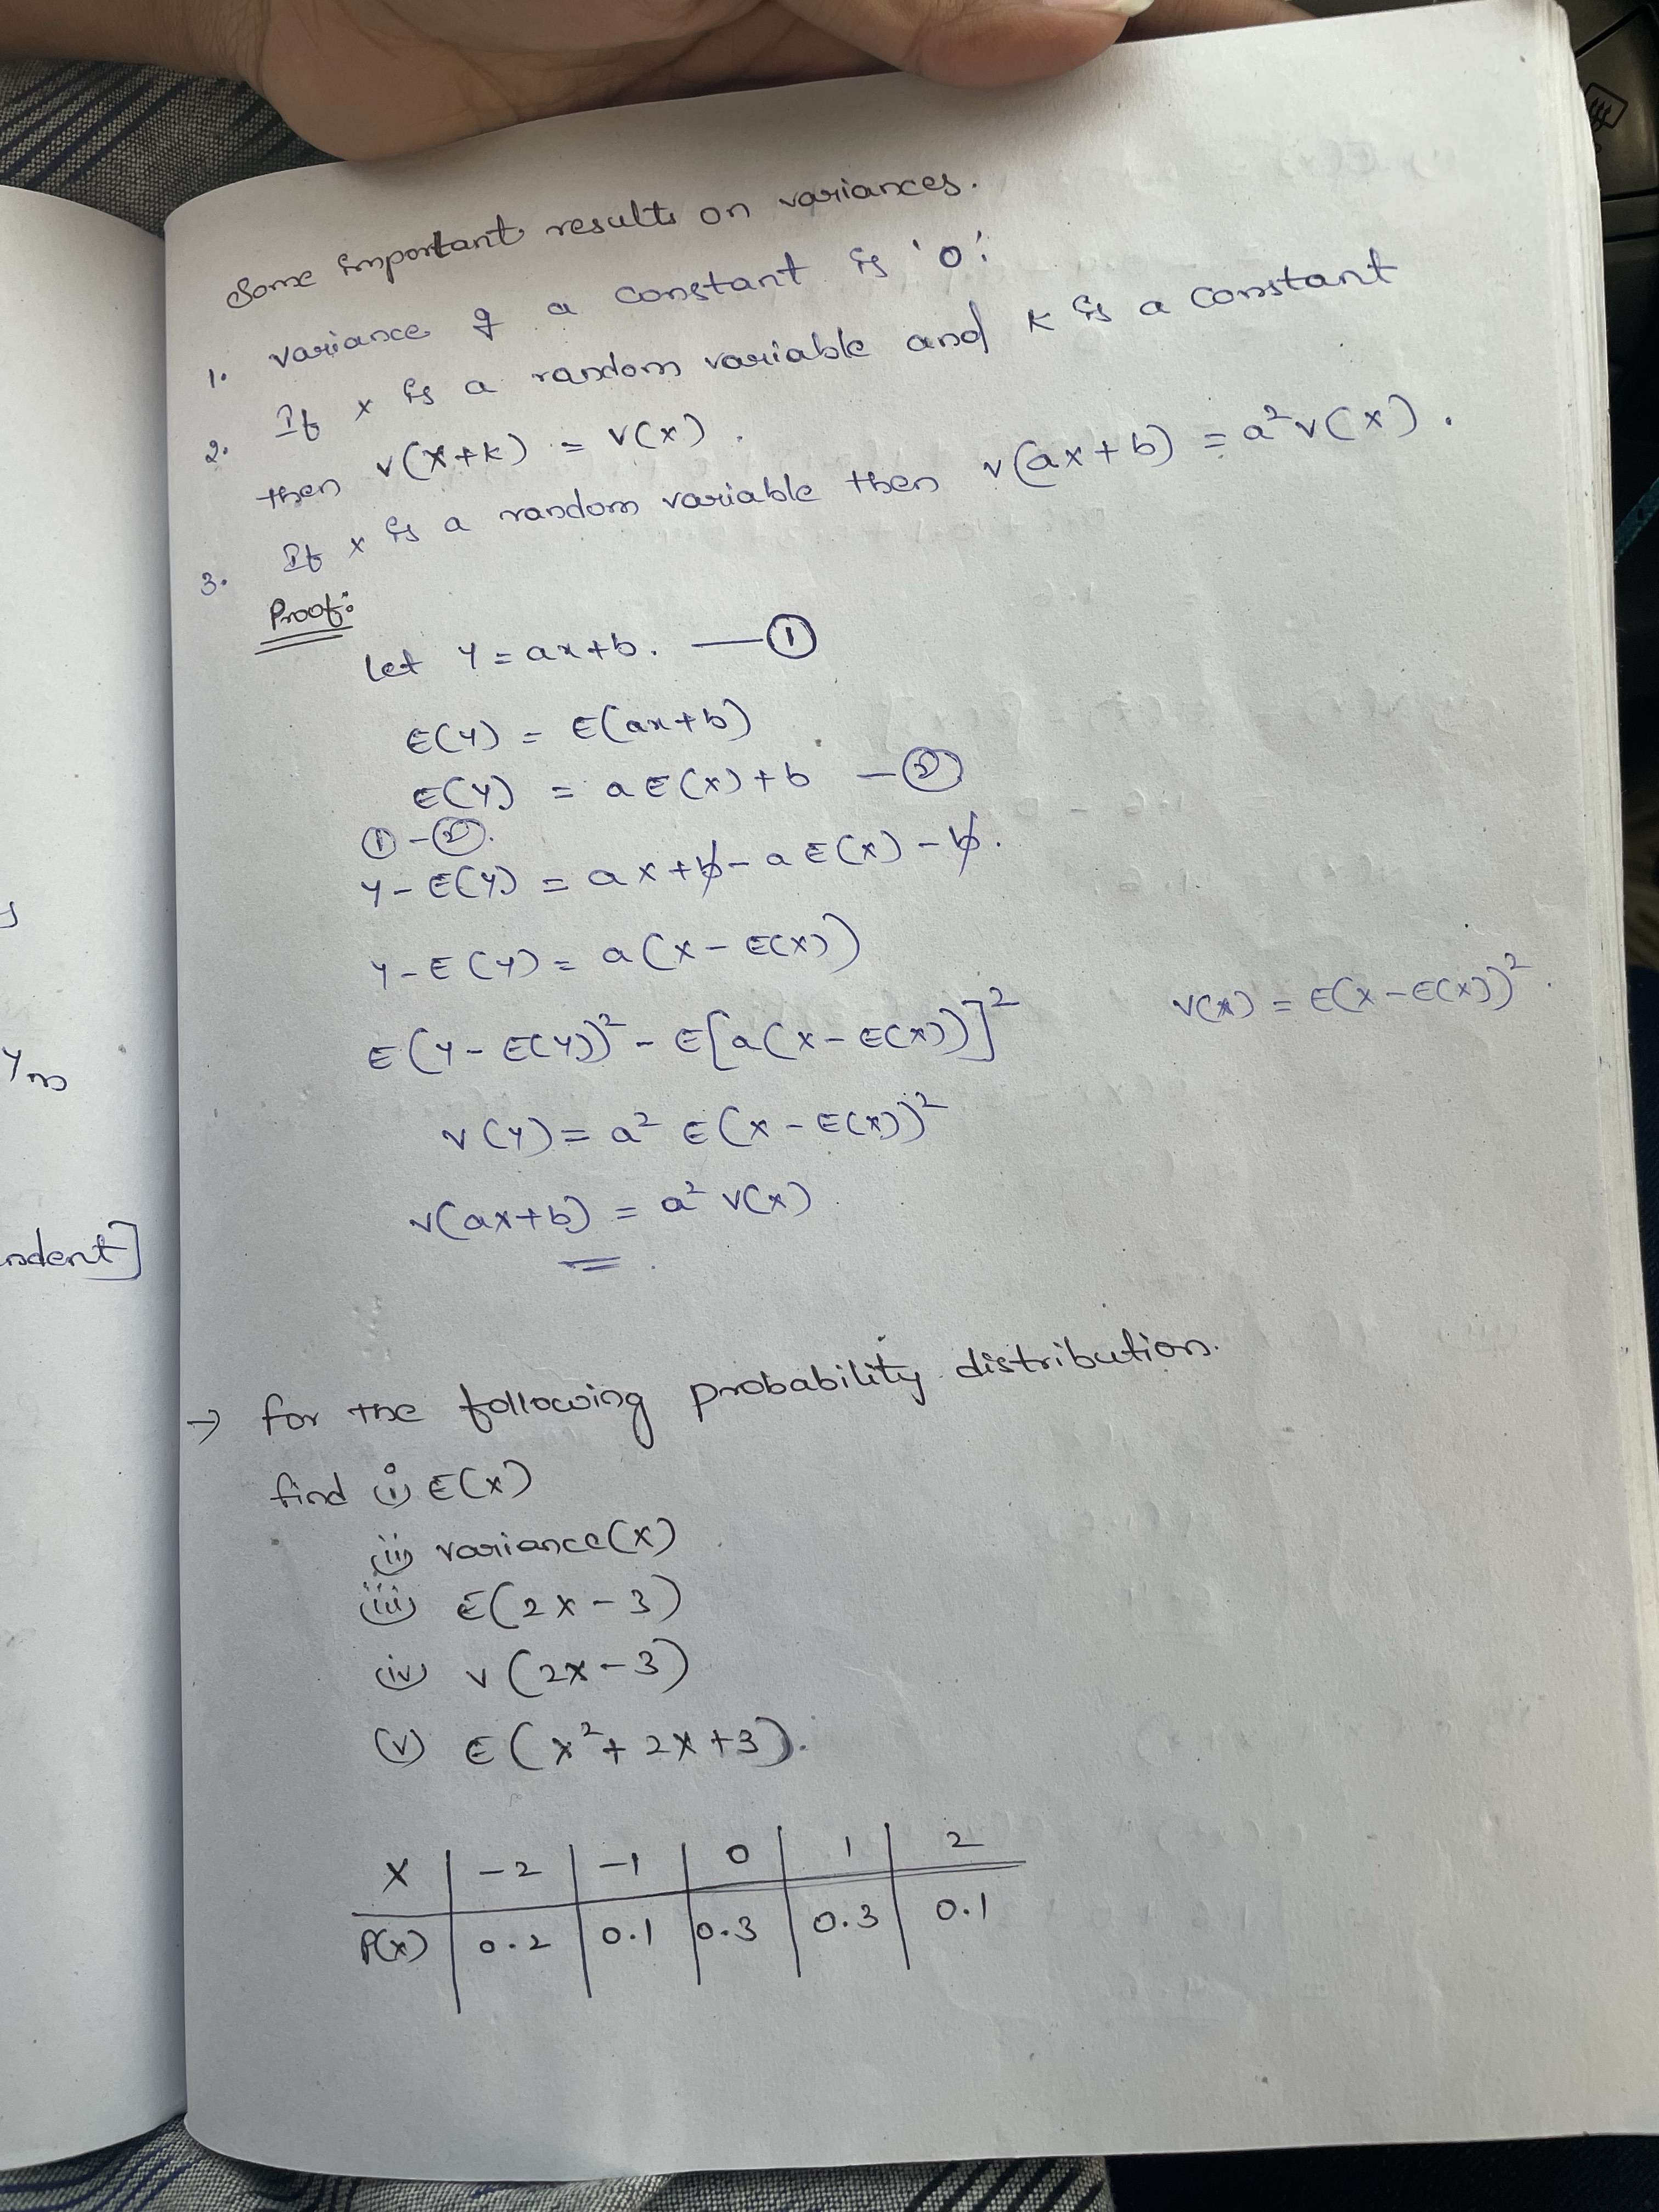 s
Ym
ndent]
Some important results on variances.
1. variance of a constant is '0'.
2. If x is a random variable and K is a constant
then v(x+k) = v(x).
3. If x is a random variable then v(ax+b) = a²v(x).
Proof:
Let Y = ax+b. —①
E(Y) = E(ax+b)
E(Y) = a E(x)+b —②
①-②.
Y-E(Y) = ax+b-aE(x)-b.
Y-E(Y) = a(x-E(x))
E(Y-E(Y))² - E[a(x-E(x))]² v(x) = E(x-E(x))².
v(Y) = a² E(x-E(x))²
v(ax+b) = a² v(x)
→ for the following probability distribution.
find (i) E(x)
(ii) variance(x)
(iii) E(2x-3)
(iv) v(2x-3)
(v) E(x²+2x+3).
X | -2 | -1 | 0 | 1 | 2
P(x) | 0.2 | 0.1 | 0.3 | 0.3 | 0.1